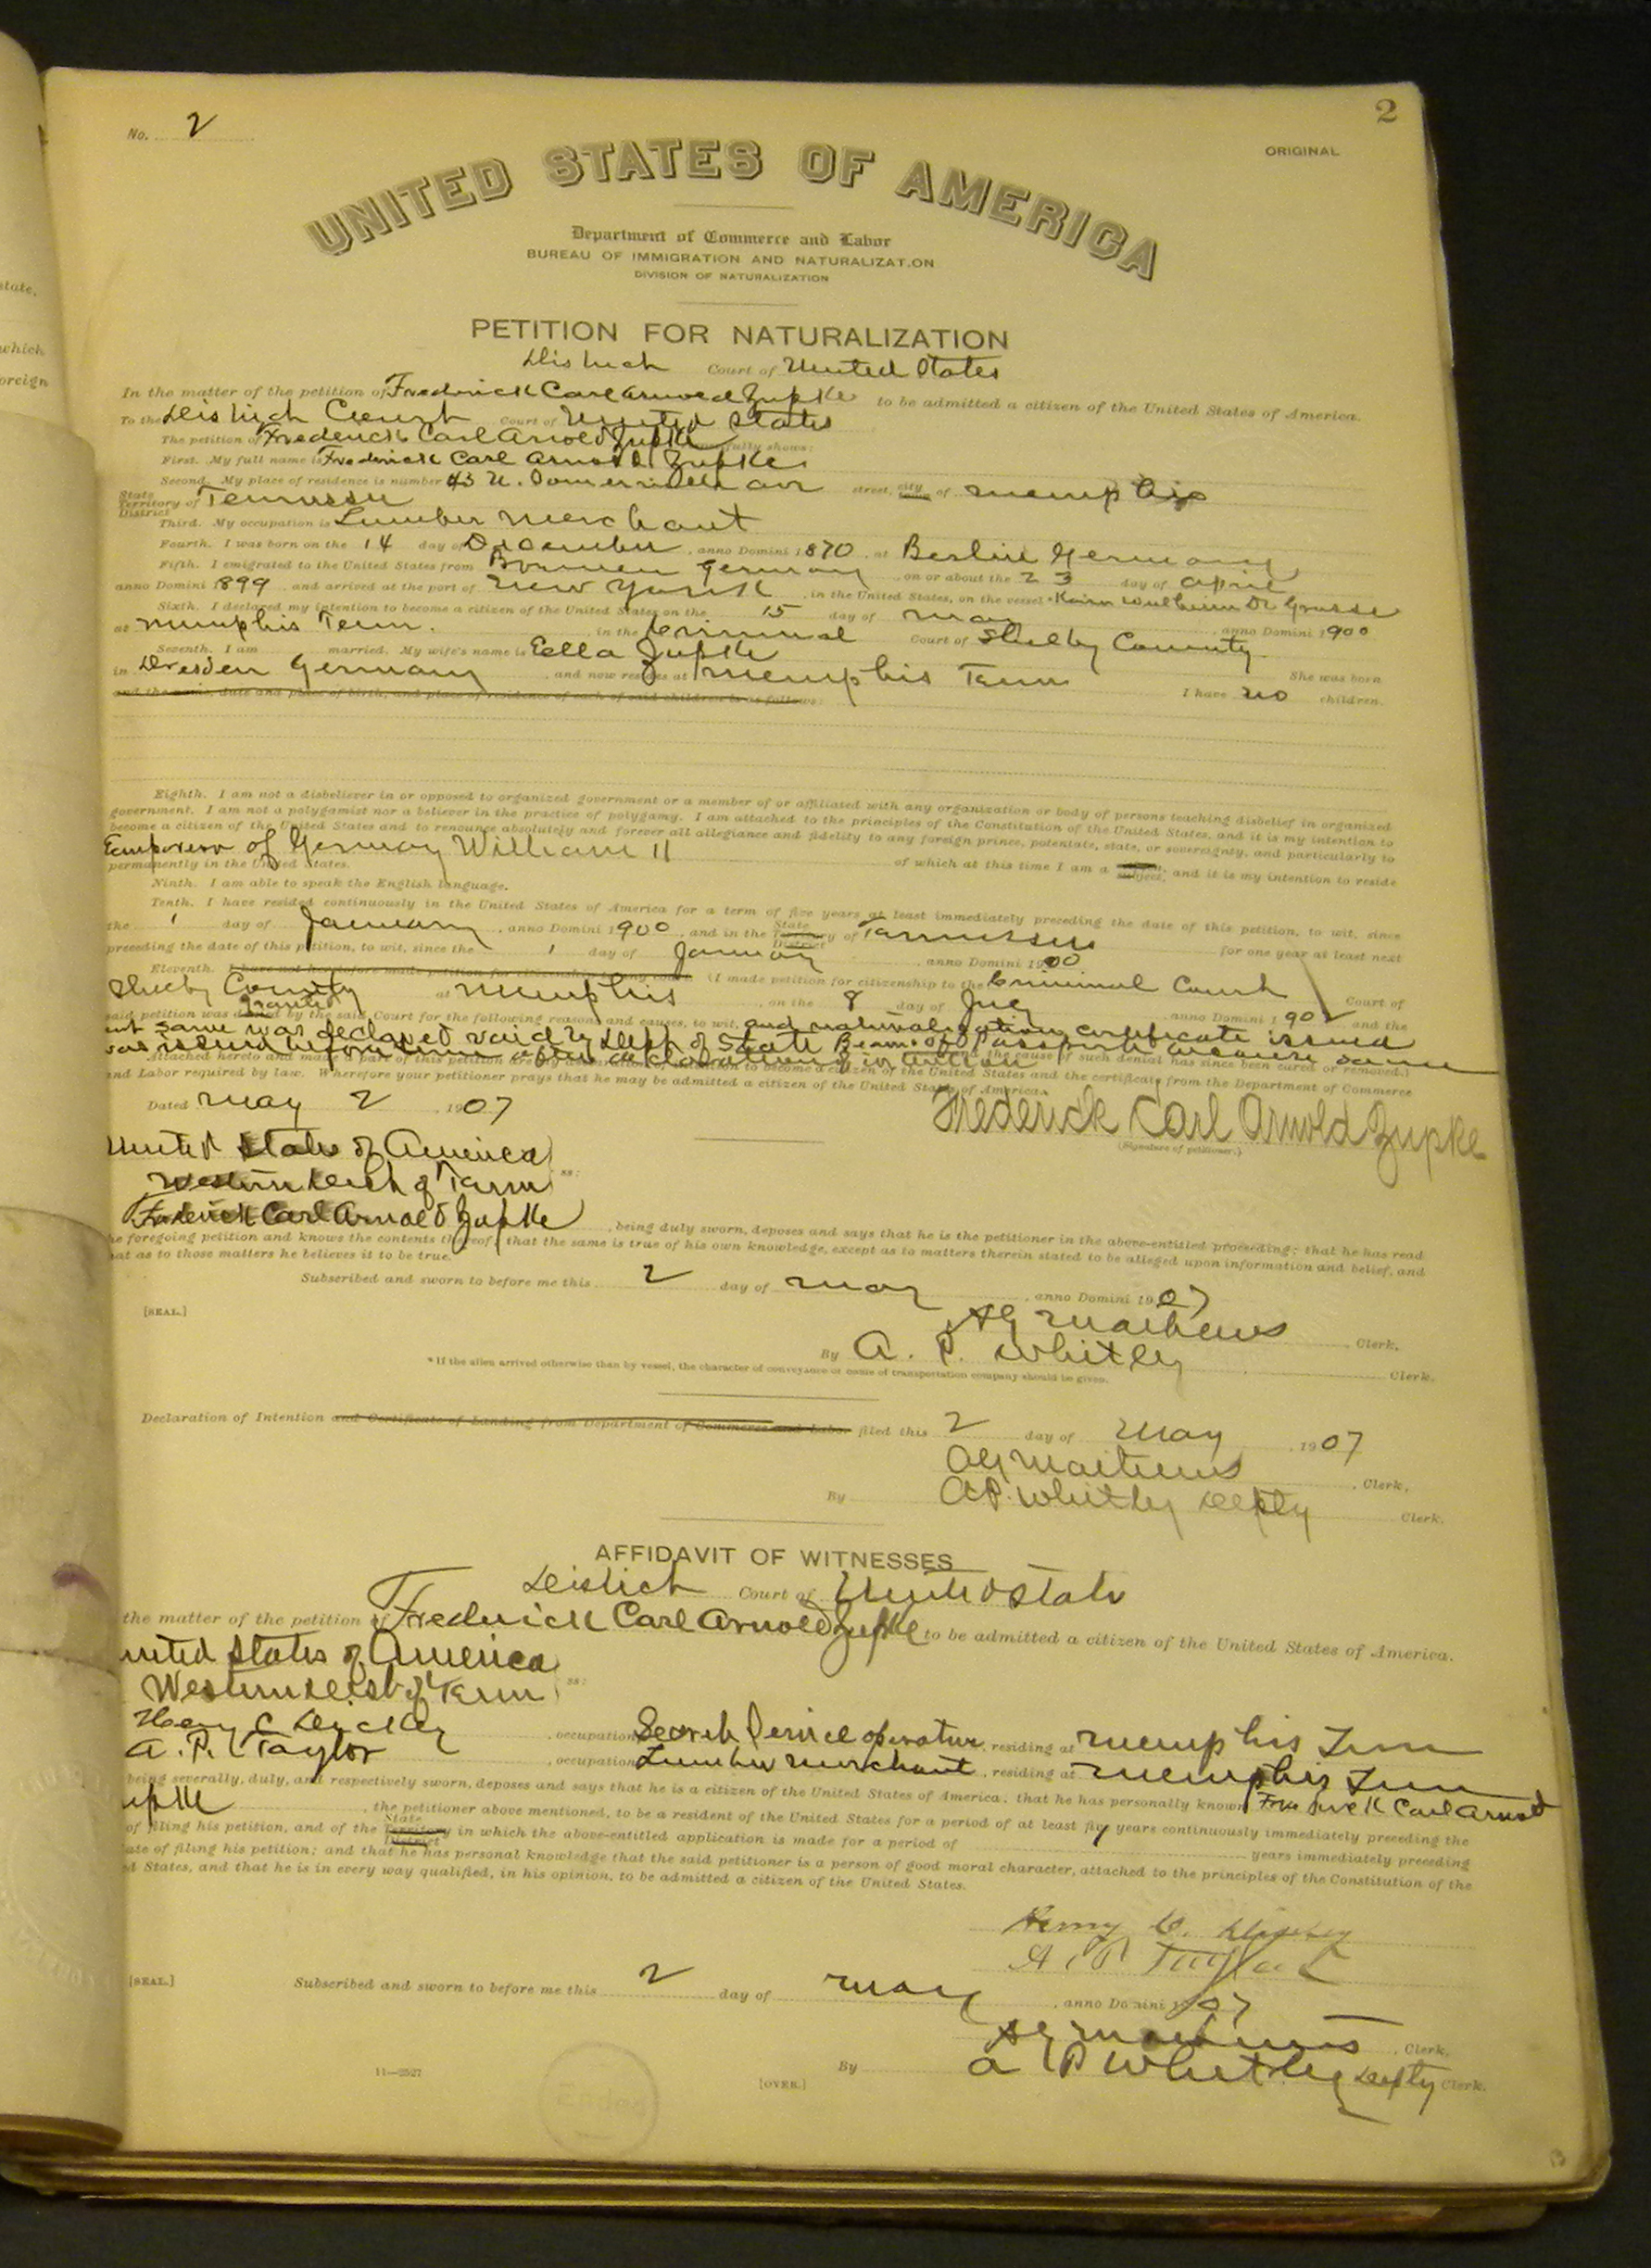 2
No. 2
ORIGINAL
UNITED STATES OF AMERICA
Department of Commerce and Labor
BUREAU OF IMMIGRATION AND NATURALIZATION
DIVISION OF NATURALIZATION
PETITION FOR NATURALIZATION
District Court of United States
In the matter of the petition of Frederick Carl Arnold Zupke to be admitted a citizen of the United States of America.
To the District Court Court of United States
The petition of Frederick Carl Arnold Zupke respectfully shows:
First. My full name is Frederick Carl Arnold Zupke
Second. My place of residence is number 43 N. Somerville av street, city of Memphis
State Territory District of Tennessee
Third. My occupation is Lumber Merchant
Fourth. I was born on the 14 day of December, anno Domini 1870, at Berlin Germany
Fifth. I emigrated to the United States from Bremen Germany, on or about the 23 day of April
anno Domini 1899, and arrived at the port of New York, in the United States, on the vessel * Kaiser Wilhelm Der Grosse
Sixth. I declared my intention to become a citizen of the United States on the 15 day of May, anno Domini 1900
at Memphis Tenn., in the Criminal Court of Shelby County
Seventh. I am married. My wife's name is Ella Zupke She was born
in Dresden Germany, and now resides at Memphis Tenn I have no children.
and the name, date and place of birth, and place of residence of each of said children is as follows:
Eighth. I am not a disbeliever in or opposed to organized government or a member of or affiliated with any organization or body of persons teaching disbelief in organized
government. I am not a polygamist nor a believer in the practice of polygamy. I am attached to the principles of the Constitution of the United States, and it is my intention to
become a citizen of the United States and to renounce absolutely and forever all allegiance and fidelity to any foreign prince, potentate, state, or sovereignty, and particularly to
Emperor of Germany William II of which at this time I am a subject, and it is my intention to reside
permanently in the United States.
Ninth. I am able to speak the English language.
Tenth. I have resided continuously in the United States of America for a term of five years at least immediately preceding the date of this petition, to wit, since
the 1 day of January, anno Domini 1900, and in the State Territory District of Tennessee for one year at least next
preceding the date of this petition, to wit, since the 1 day of January, anno Domini 1900
Eleventh. I have not heretofore made petition for citizenship to any court. (I made petition for citizenship to the Criminal Court Court of
Shelby County at Memphis, on the 8 day of July, anno Domini 1902 and the
said petition was granted by the said Court for the following reasons and causes, to wit, and naturalization certificate issued
but same was declared void by Dept of State Bureau of Passports because same
was issued before declaration of intention and the cause of such denial has since been cured or removed.)
Attached hereto and made a part of this petition are my declaration of intention to become a citizen of the United States and the certificate from the Department of Commerce
and Labor required by law. Wherefore your petitioner prays that he may be admitted a citizen of the United States of America.
Dated May 2, 1907 Frederick Carl Arnold Zupke
(Signature of petitioner.)
United States of America
Western Dist of Tenn ss:
Frederick Carl Arnold Zupke, being duly sworn, deposes and says that he is the petitioner in the above-entitled proceeding; that he has read
he foregoing petition and knows the contents thereof; that the same is true of his own knowledge, except as to matters therein stated to be alleged upon information and belief, and
hat as to those matters he believes it to be true.
Subscribed and sworn to before me this 2 day of May, anno Domini 1907
[SEAL.]
Mathews, Clerk.
By A. P. Whitley Clerk.
* If the alien arrived otherwise than by vessel, the character of conveyance or name of transportation company should be given.
Declaration of Intention and Certificate of Landing from Department of Commerce and Labor filed this 2 day of May, 1907
Mathews, Clerk.
By A.P. Whitley Depty Clerk.
AFFIDAVIT OF WITNESSES
District Court of United States
the matter of the petition of Frederick Carl Arnold Zupke to be admitted a citizen of the United States of America.
nited States of America
Western Dist of Tenn ss:
Henry C, occupation Secret Service operative, residing at Memphis Tenn
A. P. Taylor, occupation Lumber Merchant, residing at Memphis Tenn
being severally, duly, and respectively sworn, deposes and says that he is a citizen of the United States of America, that he has personally known Frederick Carl Arnold
upke, the petitioner above mentioned, to be a resident of the United States for a period of at least five years continuously immediately preceding the
of filing his petition, and of the State Territory District in which the above-entitled application is made for a period of years immediately preceding
ate of filing his petition; and that he has personal knowledge that the said petitioner is a person of good moral character, attached to the principles of the Constitution of the
d States, and that he is in every way qualified, in his opinion, to be admitted a citizen of the United States.
Henry C.
A P Taylor
[SEAL.] Subscribed and sworn to before me this 2 day of May, anno Domini 1907
Mathews, Clerk.
By A P Whitley Depty Clerk.
11—2527
[OVER.]